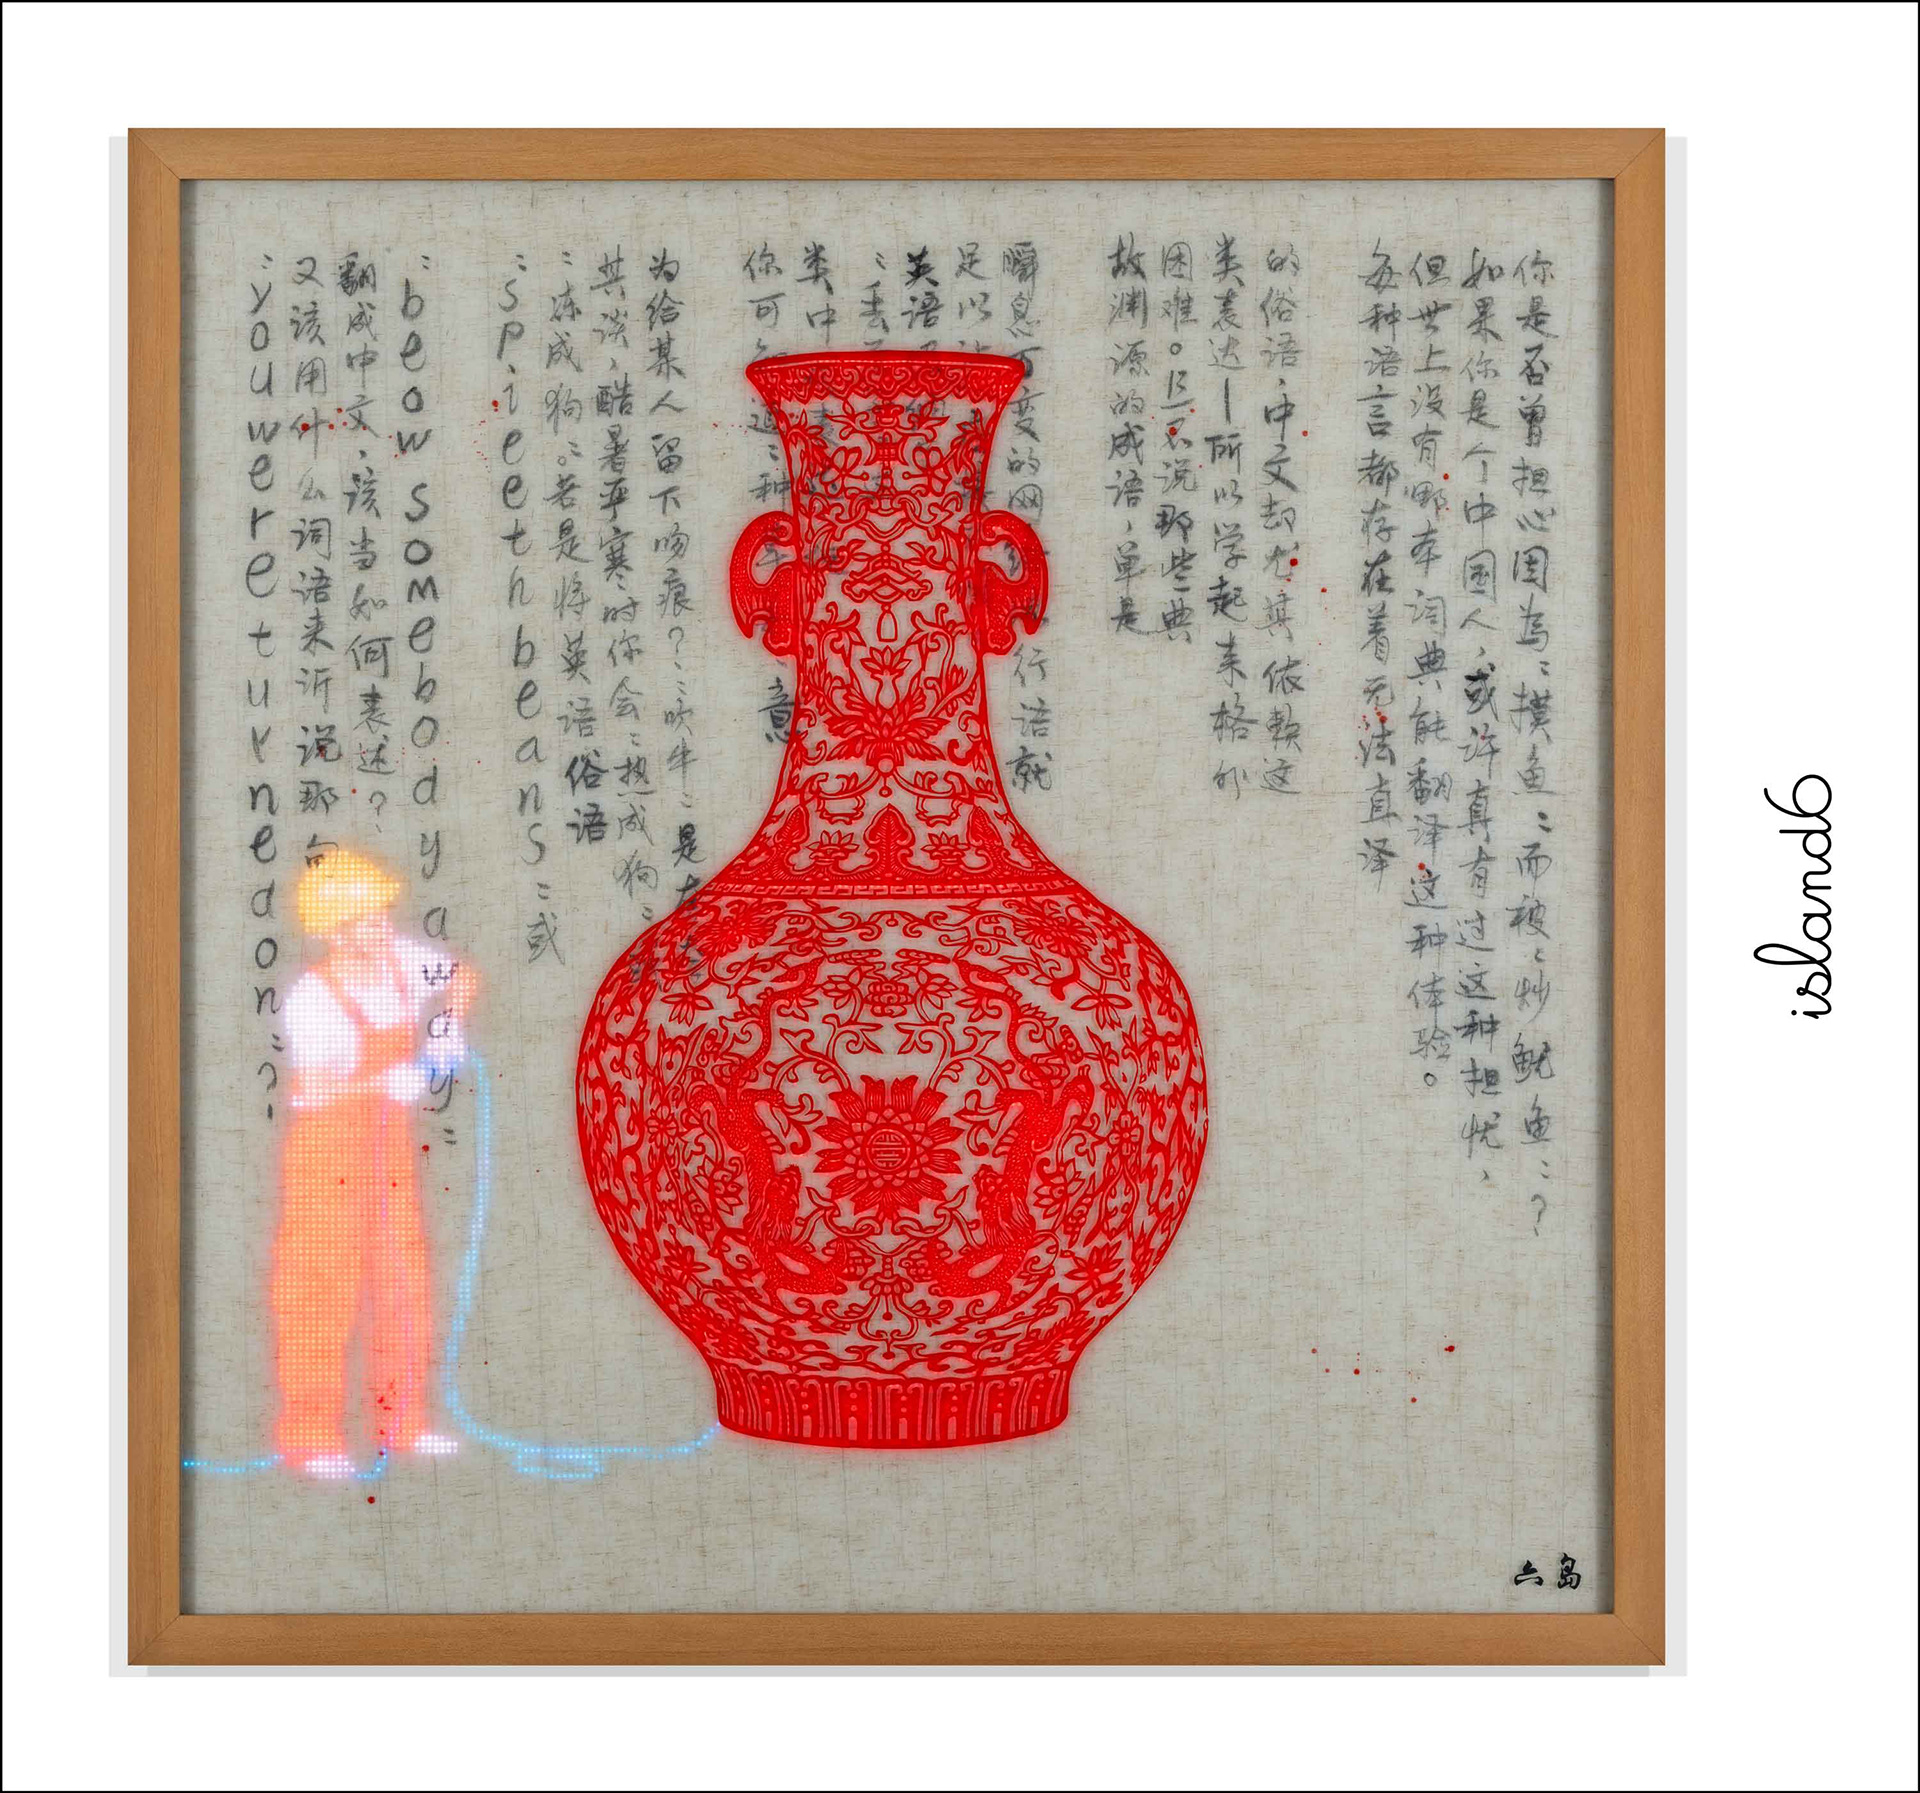 你是否曾担心因為：摸鱼：而被：炒鱿鱼：？
如果你是个中国人，或许真有过这种担忧，
但世上没有哪本词典能翻译这种体验。
每种语言都存在着无法直译
的俗语，中文却尤其依赖这
类表达—所以学起来格外
困难。且不说那些典
故渊源的成语，单是
瞬息万变的网 行语就
足以
英语
：丢
类中
你可 道：种草 意
为给某人留下吻痕？：吹牛：是
其谈，酷暑严寒时你会：热成狗：
：冻成狗：。若是将英语俗语
：spieethbeans：或
：beowsomebodyaway：
翻成中文，该当如何表述？
又该用什么词语来诉说那句
：youwereturnedon：？
六岛
island6